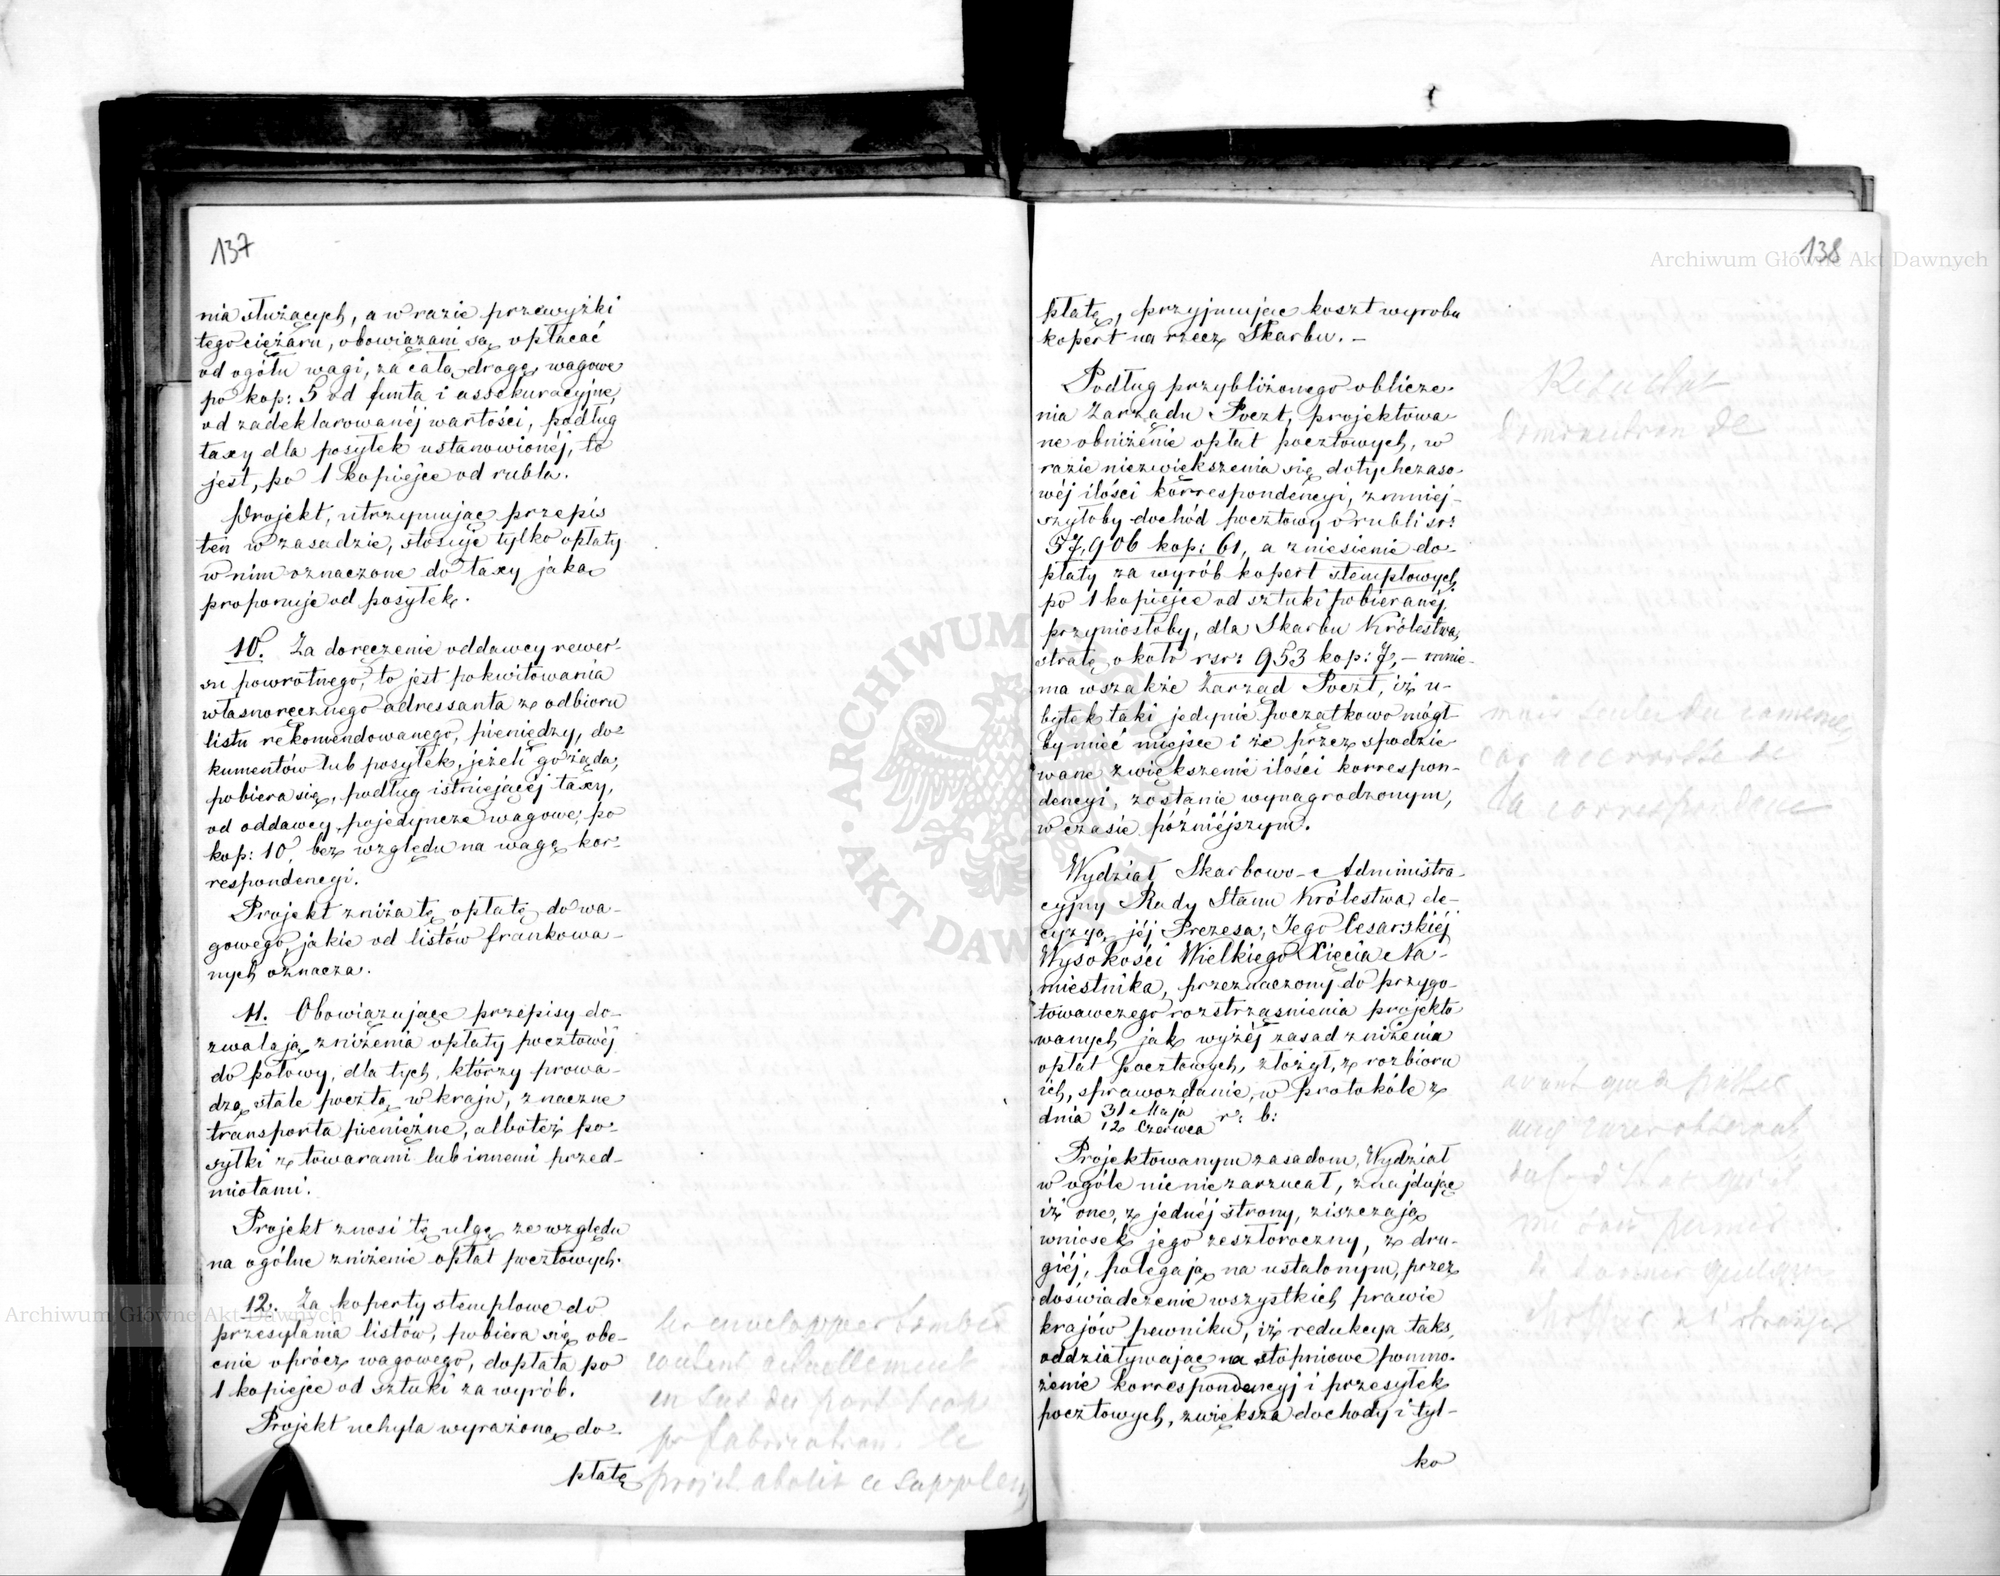 137
nia służących, a w razie przewyżki
tego ciężaru, obowiązani są opłacać
od ogółu wagi, za całą drogę, wagowe
po kop: 5 od funta i assekuracyjne,
od zadeklarowanéj wartości, podług
taxy dla posyłek ustanowionéj, to
jest, po 1 kopiejce od rubla.
Projekt, utrzymując przepis
ten w zasadzie, stosuje tylko opłaty
w nim oznaczone do taxy jaką
proponuje od posyłek.
10. Za doręczenie oddawcy rewer-
su powrotnego, to jest pokwitowania
własnoręcznego adressanta z odbioru
listu rekomendowanego, pieniędzy, do-
kumentów lub posyłek, jeżeli go żąda,
pobiera się, podług istniejącéj taxy,
od oddawcy, pojedyncze wagowe, po
kop: 10, bez względu na wagę kor-
respondencyi.
Projekt zniża tę opłatę do wa-
gowego, jakie od listów frankowa-
nych oznacza.
11. Obowiązujące przepisy do-
zwalają zniżenia opłaty pocztowéj
do połowy, dla tych, którzy prowa-
dzą stale pocztą w kraju, znaczne
transporta pieniężne, albo też po-
syłki z towarami lub innemi przed-
miotami.
Projekt znosi tę ulgę ze względu
na ogólne zniżenie opłat pocztowych.
12. Za koperty stemplowe do
przesyłania listów, pobiera się obe-
cnie oprócz wagowego, dopłata po
1 kopiejce od sztuki za wyrób.
Projekt uchyla wyrażoną do-
płatę
les enveloppes timbrées
coutent actuellement
en sus du port 1 cop
pr fabrication. le
projet abolit ce supplem
138
płatę, przyjmując koszt wyrobu
kopert na rzecz Skarbu. –
Podług przybliżonego oblicze-
nia Zarządu Poczt, projektowa-
ne obniżenie opłat pocztowych, w
razie niezwiększenia się dotychczaso-
wéj ilości korrespondencyi, zmniej-
szyłoby dochód pocztowy o rubli sr:
57,906 kop: 61, a zniesienie do-
płaty za wyrób kopert stemplowych
po 1 kopiejce od sztuki pobieranéj,
przyniosłoby, dla Skarbu Królestwa,
stratę około rsr: 953 kop: 7, – mnie-
ma wszakże Zarząd Poczt, iż u-
bytek taki jedynie początkowo mógł-
by mieć miejsce i że przez spodzie-
wane zwiększenie ilości korrespon-
dencyi, zostanie wynagrodzonym,
w czasie późniejszym.
Wydział Skarbowo-Administra-
cyjny Rady Stanu Królestwa, de-
cyzyą jéj Prezesa, Jego Cesarskiéj
Wysokości Wielkiego Xięcia Na-
miestnika, przeznaczony do przygo-
towawczego rozstrząśnienia projekto-
wanych jak wyżéj zasad zniżenia
opłat pocztowych, złożył, z rozbioru
ich, sprawozdanie, w protokóle z
dnia 31 Maja / 12 Czerwca r: b:
Projektowanym zasadom, Wydział
w ogóle nic nie zarzucał, znajdując
iż one, z jednéj strony, ziszczają
wniosek jego zeszłoroczny, z dru-
giéj, polegają na ustalonym, przez
doświadczenie wszystkich prawie
krajów pewniku, iż redukcya taks,
oddziaływając na stopniowe pomno-
żenie korrespondencyj i przesyłek
pocztowych, zwiększa dochody i tyl-
ko
Resultat
diminution de
mais seulem du commenc
car accroiss de
la correspondance
Archiwum Główne Akt Dawnych
Archiwum Główne Akt Dawnych
ARCHIWUM
AKT DAWNYCH